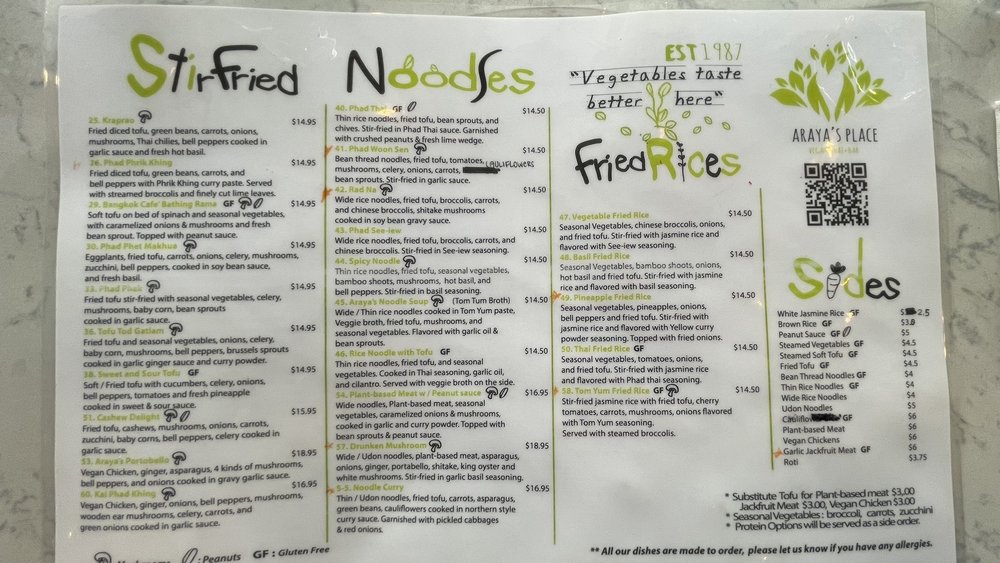 StirFried
25. Kraprao $14.95
Fried diced tofu, green beans, carrots, onions,
mushrooms, Thai chilies, bell peppers cooked in
garlic sauce and fresh hot basil.
26. Phad Phrik Khing $14.95
Fried diced tofu, green beans, carrots, and
bell peppers with Phrik Khing curry paste. Served
with streamed broccolis and finely cut lime leaves.
29. Bangkok Cafe' Bathing Rama GF $14.95
Soft tofu on bed of spinach and seasonal vegetables,
with caramelized onions & mushrooms and fresh
bean sprout. Topped with peanut sauce.
30. Phad Phet Makhua $14.95
Eggplants, fried tofu, carrots, onions, celery, mushrooms,
zucchini, bell peppers, cooked in soy bean sauce,
and fresh basil.
33. Phad Phak $14.95
Fried tofu stir-fried with seasonal vegetables, celery,
mushrooms, baby corn, bean sprouts
cooked in garlic sauce.
36. Tofu Tod Gatiam $14.95
Fried tofu and seasonal vegetables, onions, celery,
baby corn, mushrooms, bell peppers, brussels sprouts
cooked in garlic ginger sauce and curry powder.
38. Sweet and Sour Tofu GF $14.95
Soft / Fried tofu with cucumbers, celery, onions,
bell peppers, tomatoes and fresh pineapple
cooked in sweet & sour sauce.
51. Cashew Delight $15.95
Fried tofu, cashews, mushrooms, onions, carrots,
zucchini, baby corns, bell peppers, celery cooked in
garlic sauce.
53. Araya's Portobello $18.95
Vegan Chicken, ginger, asparagus, 4 kinds of mushrooms,
bell peppers, and onions cooked in gravy garlic sauce.
60. Kai Phad Khing $16.95
Vegan Chicken, ginger, onions, bell peppers, mushrooms,
wooden ear mushrooms, celery, carrots, and
green onions cooked in garlic sauce.
: Peanuts GF : Gluten Free
Noodles
40. Phad Thai GF $14.50
Thin rice noodles, fried tofu, bean sprouts, and
chives. Stir-fried in Phad Thai sauce. Garnished
with crushed peanuts & fresh lime wedge.
41. Phad Woon Sen $14.50
Bean thread noodles, fried tofu, tomatoes,
mushrooms, celery, onions, carrots, CAULIFLOWERS
bean sprouts. Stir-fried in garlic sauce.
42. Rad Na $14.50
Wide rice noodles, fried tofu, broccolis, carrots,
and chinese broccolis, shitake mushrooms
cooked in soy bean gravy sauce.
43. Phad See-iew $14.50
Wide rice noodles, fried tofu, broccolis, carrots, and
chinese broccolis. Stir-fried in See-iew seasoning.
44. Spicy Noodle $14.50
Thin rice noodles, fried tofu, seasonal vegetables,
bamboo shoots, mushrooms, hot basil, and
bell peppers. Stir-fried in basil seasoning.
45. Araya's Noodle Soup (Tom Tum Broth) $14.50
Wide / Thin rice noodles cooked in Tom Yum paste,
Veggie broth, fried tofu, mushrooms, and
seasonal vegetables. Flavored with garlic oil &
bean sprouts.
46. Rice Noodle with Tofu GF $14.50
Thin rice noodles, fried tofu, and seasonal
vegetables. Cooked in Thai seasoning, garlic oil,
and cilantro. Served with veggie broth on the side.
54. Plant-based Meat w / Peanut sauce $16.95
Wide noodles, Plant-based meat, seasonal
vegetables, caramelized onions & mushrooms,
cooked in garlic and curry powder. Topped with
bean sprouts & peanut sauce.
57. Drunken Mushroom $18.95
Wide / Udon noodles, plant-based meat, asparagus,
onions, ginger, portabello, shitake, king oyster and
white mushrooms. Stir-fried in garlic basil seasoning.
5-5. Noodle Curry $16.95
Thin / Udon noodles, fried tofu, carrots, asparagus,
green beans, cauliflowers cooked in northern style
curry sauce. Garnished with pickled cabbages
& red onions.
EST 1987
"Vegetables taste
better here"
Fried Rices
47. Vegetable Fried Rice $14.50
Seasonal Vegetables, chinese broccolis, onions,
and fried tofu. Stir-fried with jasmine rice and
flavored with See-iew seasoning.
48. Basil Fried Rice $14.50
Seasonal Vegetables, bamboo shoots, onions,
hot basil and fried tofu. Stir-fried with jasmine
rice and flavored with basil seasoning.
49. Pineapple Fried Rice $14.50
Seasonal vegetables, pineapples, onions,
bell peppers and fried tofu. Stir-fried with
jasmine rice and flavored with Yellow curry
powder seasoning. Topped with fried onions.
50. Thai Fried Rice GF $14.50
Seasonal vegetables, tomatoes, onions,
and fried tofu. Stir-fried with jasmine rice
and flavored with Phad thai seasoning.
58. Tom Yum Fried Rice GF $14.50
Stir-fried jasmine rice with fried tofu, cherry
tomatoes, carrots, mushrooms, onions flavored
with Tom Yum seasoning.
Served with steamed broccolis.
ARAYA'S PLACE
Sides
White Jasmine Rice GF 2.5
Brown Rice GF
Peanut Sauce GF $5
Steamed Vegetables GF $4.5
Steamed Soft Tofu GF $4.5
Fried Tofu GF $4.5
Bean Thread Noodles GF $4
Thin Rice Noodles GF $4
Wide Rice Noodles $4
Udon Noodles $5
GF $6
Plant-based Meat $6
Vegan Chickens $6
Garlic Jackfruit Meat GF $6
Roti $3.75
* Substitute Tofu for Plant-based meat $3,00
Jackfruit Meat $3.00, Vegan Chicken $3.00
* Seasonal Vegetables : broccoli, carrots, zucchini
* Protein Options will be served as a side order.
** All our dishes are made to order, please let us know if you have any allergies.